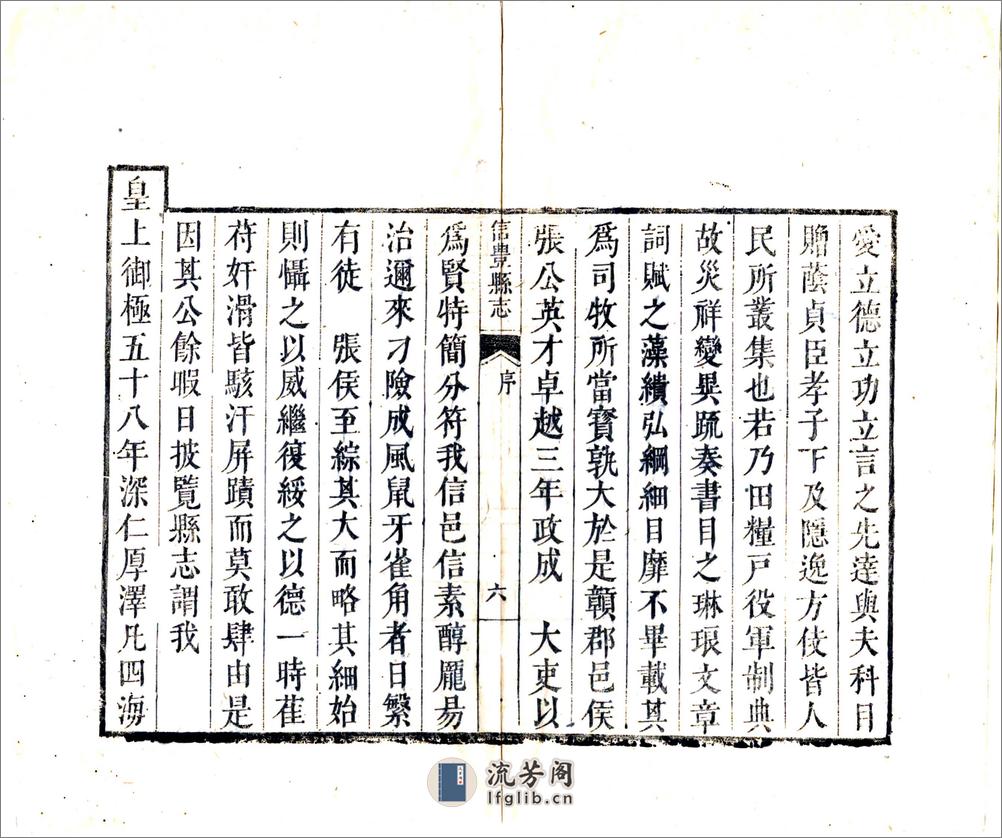 愛立德立功立言之先達與夫科目
贈蔭貞臣孝子下及隱逸方伎皆人
民所叢集也若乃田糧戸役軍制典
故災祥變異疏奏書目之琳琅文章
詞賦之藻繢弘綱細目靡不畢載其
爲司牧所當寳孰大於是贛郡邑侯
張公英才卓越三年政成　大吏以
信豊縣志
序
六
爲賢特簡分符我信邑信素醇龐易
治邇來刁險成風鼠牙雀角者日繁
有徒　張侯至綜其大而略其細始
則懾之以威繼復綏之以德一時萑
苻奸滑皆駭汗屏蹟而莫敢肆由是
因其公餘暇日披覽縣志謂我
皇上御極五十八年深仁厚澤凡四海
流芳阁
lfglib.cn